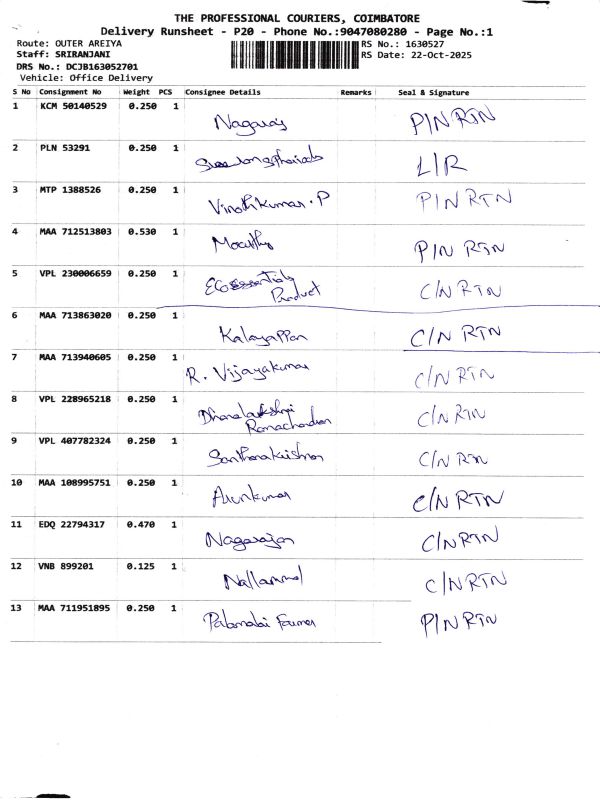 THE PROFESSIONAL COURIERS, COIMBATORE
Delivery Runsheet - P20 - Phone No.:9047080280 - Page No.:1
Route: OUTER AREIYA RS No.: 1630527
Staff: SRIRANJANI RS Date: 22-Oct-2025
DRS No.: DCJB163052701
Vehicle: Office Delivery
S No Consignment No Weight PCS Consignee Details Remarks Seal & Signature
1 KCM 50140529 0.250 1 Nagaraj P/N RTN
2 PLN 53291 0.250 1 L/R
3 MTP 1388526 0.250 1 Vinothkumar. P P/N RTN
4 MAA 712513803 0.530 1 P/N RTN
5 VPL 230006659 0.250 1 C/N RTN
Product
6 MAA 713863020 0.250 1 Kalayappan C/N RTN
7 MAA 713940605 0.250 1 R. Vijayakumar C/N RTN
8 VPL 228965218 0.250 1 Dhanalakshmi C/N RTN
Ramachandran
9 VPL 407782324 0.250 1 Santhanakrishnan C/N RTN
10 MAA 108995751 0.250 1 Arunkumar C/N RTN
11 EDQ 22794317 0.470 1 Nagarajan C/N RTN
12 VNB 899201 0.125 1 Nallammal C/N RTN
13 MAA 711951895 0.250 1 Palamalai Farmer P/N RTN